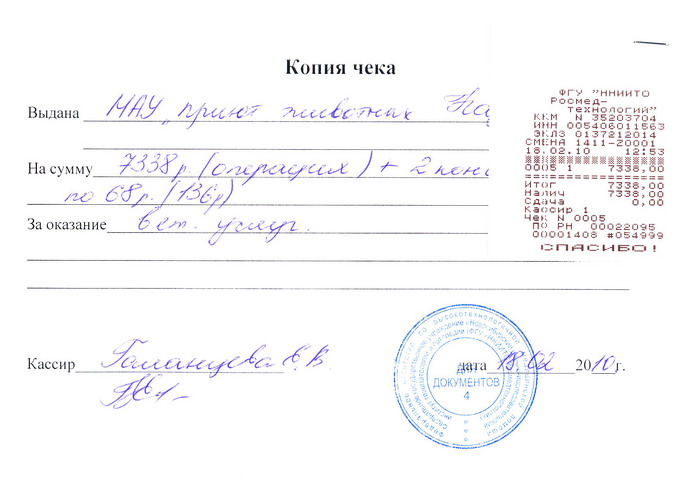 Копия чека
Выдана МАУ "приют животных
На сумму 7338 р. (операция) + 2
по 68 р. (136р)
За оказание вет. услуг.
Кассир Е.В.
дата 18.02 2010 г.
ДЛЯ
ДОКУМЕНТОВ
4
ФГУ "ННИИТО
Росмед-
технологий"
ККМ N 35203704
ИНН 005406011563
ЭКЛЗ 0137212014
СМЕНА 1411-20001
18.02.10 12:53
0005 1 7338,00
ИТОГ 7338,00
Налич 7338,00
Сдача 0,00
Кассир 1
Чек N 0005
ПО РН 00022095
00001408 #054999
СПАСИБО!